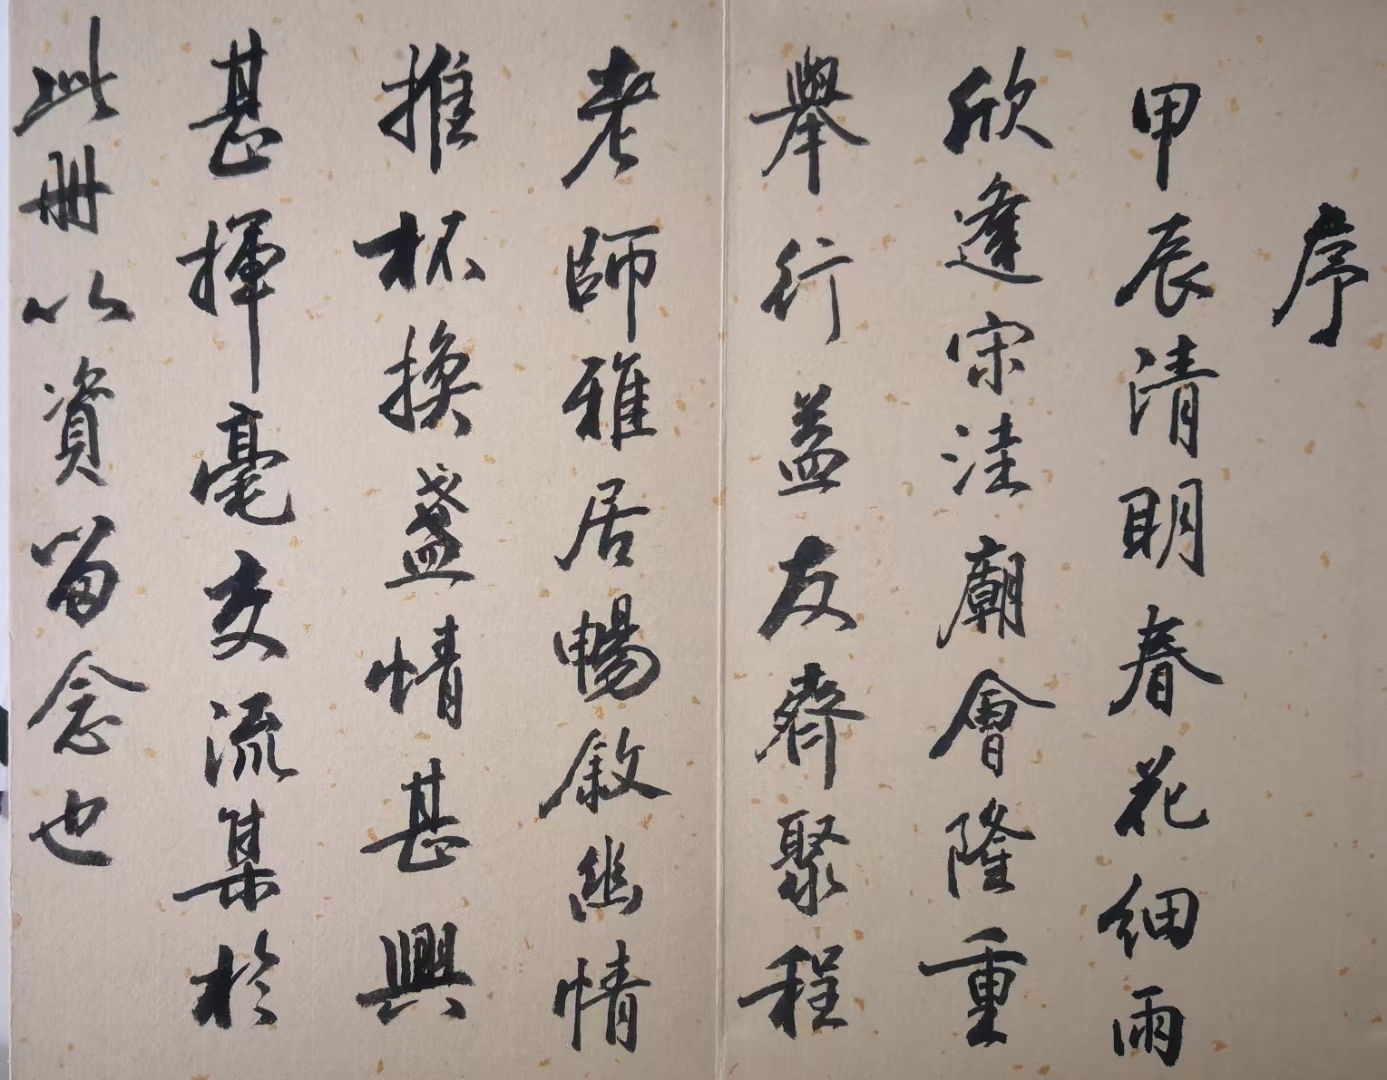 序
甲辰清明春花細雨
欣逢宋洼廟會隆重
舉行益友齊聚程
老師雅居暢敘幽情
推杯換盞情甚興
甚揮毫交流集於
此冊以資留念也